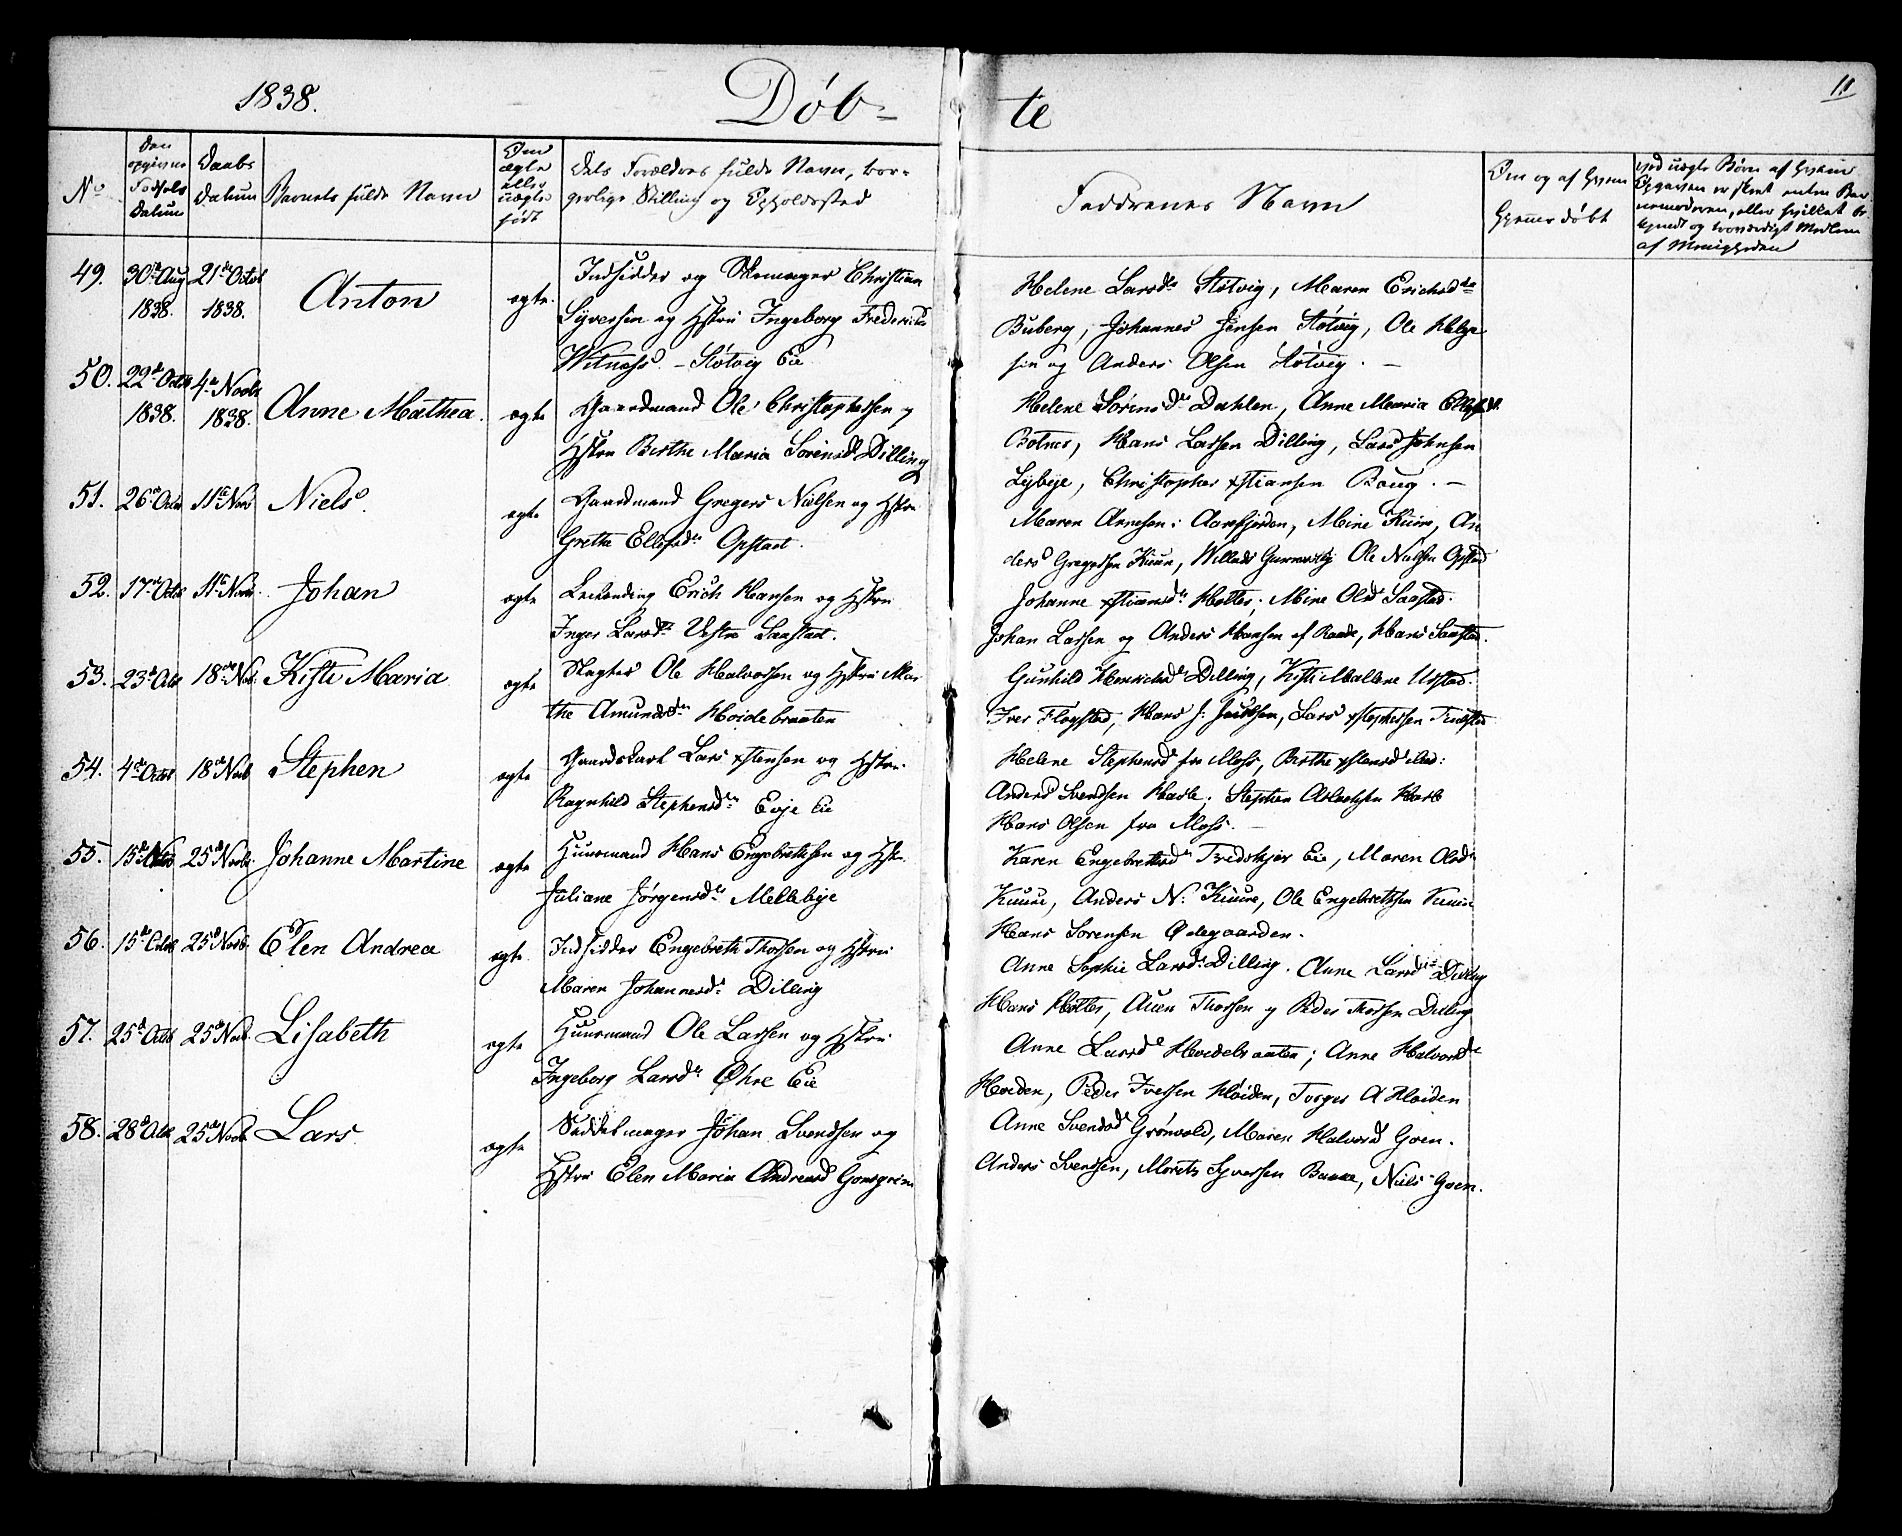 1838.
Døb-
te
11
No
Den opgivne Fødsels Datum
Daabs Datum
Barnets fulde Navn
Om ægte eller uægte født
Dets Forældres fulde Navn, bor-
gerlige Stilling og Opholdssted
Faddrenes Navn
Om og af hvem
hjemmedøbt
ved uægte Børn af hvem
Opgaven er skeet enten Bar-
nemoderen, eller hvilket be-
kjendt og troværdigt Medlem
af Menigheden
49. 30te Aug 1838. 21de Octob 1838. Anton ægte.
Indsidder og Skomager Christian
Syversen og Hstru Ingeborg Fredericsd
Witnæss. - Støtvig Eie
Helene Larsdr Støtvig, Maren Erichsdtr
Buberg, Johannes Jensen Støtvig, Ole Helge
sen og Anders Olsen Støtvig. -
50. 22de Octb 1838. 4de Novbr 1838. Anne Mathea. ægte
Gaardmand Ole Christophersen og
Hstru Birthe Maria Sørensdr Dilling
Helene Sørensdr Dahlen, Anne Maria
Botner, Hans Larsen Dilling, Lars Johnsen
Lybye, Christopher xstiansen Boug. -
51. 26de Octb 11te Novb Niels. ægte
Gaardmand Gregers Nielsen og Hstru
Grethe Ellefsdr Opstad.
Maren Arnesen i Aarefjorden, Mine Kuure, An
ders Gregersen Kuure, Ole Nielsen Opstad
52. 17de Octb 11te Novb. Johan ægte
Leilending Erich Hansen og Hstru
Inger Larsdr Vestre Saastad.
Johanne xstiansdr Holter, Mine Olsd Saastad.
Johan Larsen og Anders Hansen af Raade, Hans Saastad.
53. 23de Octb 18de Nov. Kisti Maria ægte
Slagter Ole Halvorsen og Hstru Mar
the Amundsdtr Hoidebraaten
Gunhild Henrichsdr Dilling, Kisti Mallene Urstad.
Iver Flogstad, Hans J. Lars
54. 4de Octb 18de Novb Stephen ægte
Gaardskarl Lars xstensen og Hstru.
Ragnhild Stephensdtr Evje Eie
Helene Stephensd fra Moss, Birthe xstensd ibid:
Anders Svendsen Hasle. Stephen Hasle
Hans Olsen fra Moss. -
55. 15de 25de Novb. Johanne Martine ægte
Huusmand Hans Engebrethsen og Hstr.
Juliane Jørgensdr Mellebye
Karen Engebrethsdr Tredskjær Eie, Maren Olsdr
Kuure, Anders N. Kuure, Ole Engebrethsen Kuure
Hans Sørensen Ødegaarden.
56. 15de Octb 25de Novb. Elen Andrea ægte.
Indsidder Engebreth Thorsen og Hstru
Maren Johannesdr Dilling
Anne Sophie Larsdr Dilling. Anne Larsdtr Dilling
Hans Holter, Auen Thorsen og Peder Thorsen Dilling
57. 25de Octb 25de Novb. Lisabeth ægte
Huusmand Ole Larsen og Hstru
Ingeborg Larsdr Øhre Eie
Anne Larsd Hoidebraaten; Anne Halvorsdtr
Hoiden, Peder Iversen Høiden, Torger A Høiden
58. 28de Octb 25de Novb. Lars ægte
Saddelmager Johan Svendsen og
Hstru Elen Maria Andreasd
Anne Svendsd Grønvold, Maren Halvorsd Goen.
Anders Svendsen, Morets Syversen Niels Goen.